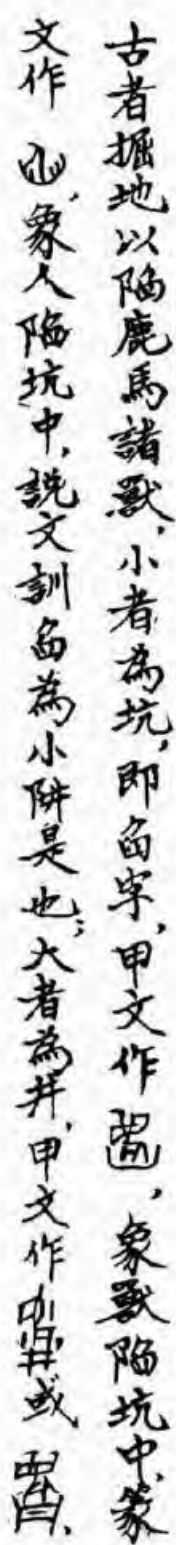 古者掘地以陷鹿馬諸獸,小者為坑,即臽字,甲文作,象獸陷坑中,篆
文作,象人陷坑中,説文訓臽為小阱是也;大者為井,甲文作或